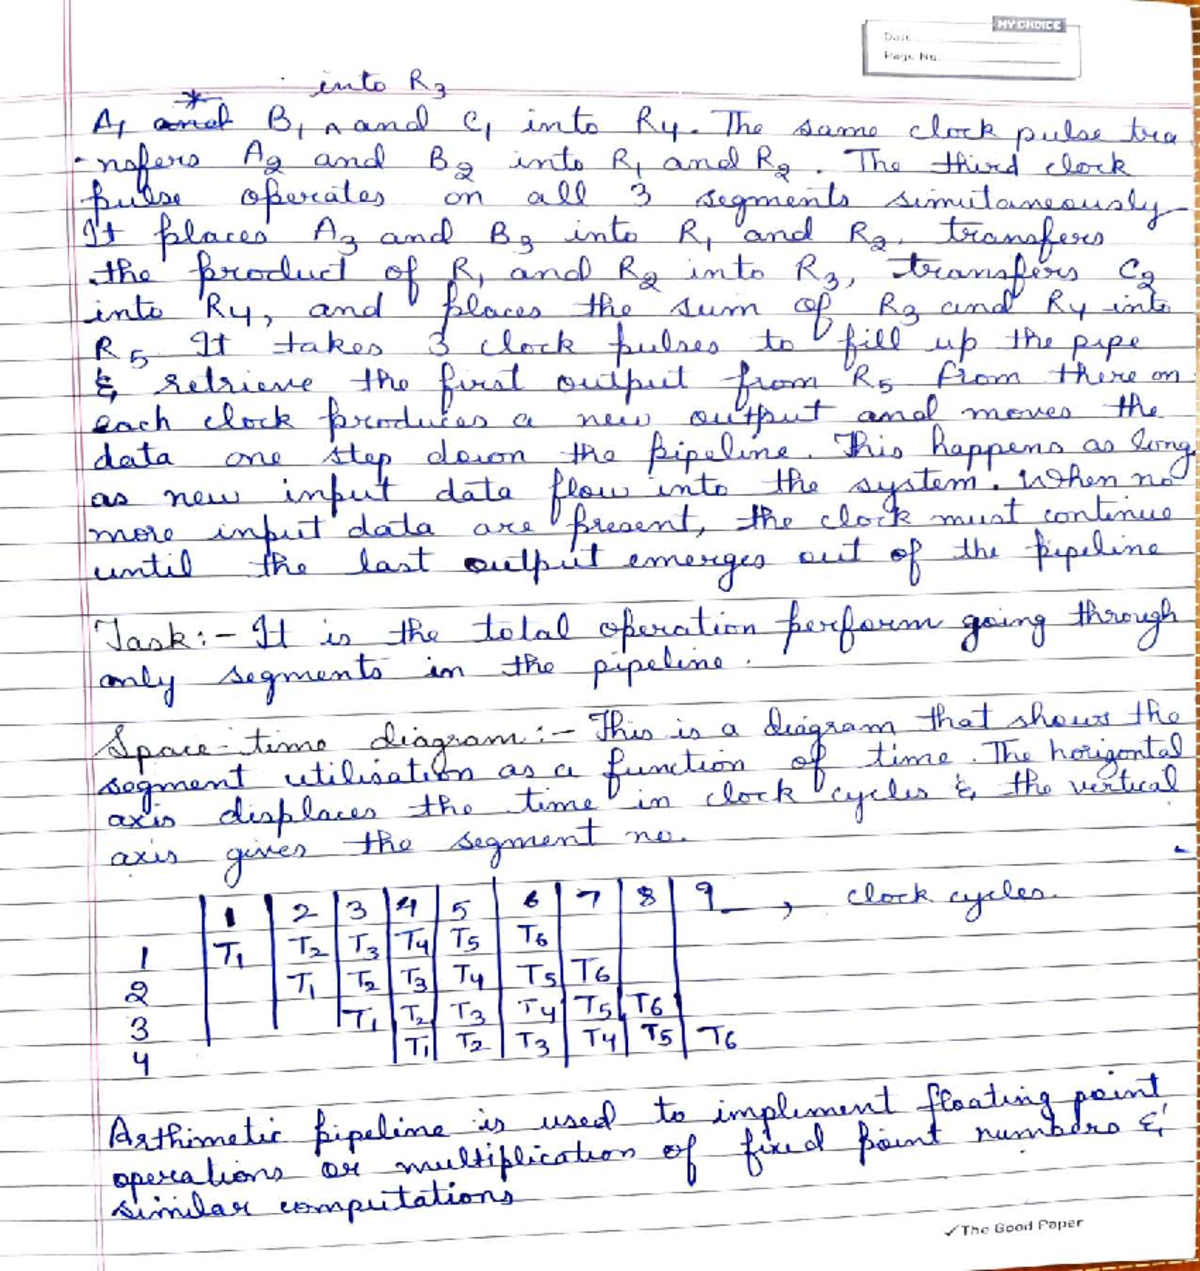 MY CHOICE
Date
Page No.
into R3
A1 * B1 ^ and C1 into R4. The same clock pulse tra
-nsfers A2 and B2 into R1 and R2. The third clock
pulse operates on all 3 segments simultaneously
It places A3 and B3 into R1 and R2, transfers
the product of R1 and R2 into R3, transfers C2
into R4, and places the sum of R3 and R4 into
R5. It takes 3 clock pulses to fill up the pipe
& retrieve the first output from R5 from there on
each clock produces a new output and moves the
data one step down the pipeline. This happens as long
as new input data flow into the system. When no
more input data are present, the clock must continue
until the last output emerges out of the pipeline
Task:- It is the total operation perform going through
only segments in the pipeline.
Space-time diagram:- This is a diagram that shows the
segment utilisation as a function of time. The horizontal
axis displaces the time in clock cycles & the vertical
axis gives the segment no.
1 2 3 4 5 6 7 8 9 → clock cycles.
1 T1 T2 T3 T4 T5 T6
2 T1 T2 T3 T4 T5 T6
3 T1 T2 T3 T4 T5 T6
4 T1 T2 T3 T4 T5 T6
Arthimetic pipeline is used to implement floating point
operations or multiplication of fixed point numbers &
similar computations
✓The Good Paper